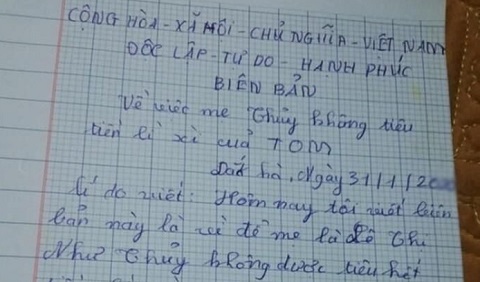 CỘNG HÒA - XÃ HỘI - CHỦ NGHĨA - VIỆT NAM
ĐỘC LẬP - TỰ DO - HANH PHÚC
BIÊN BẢN
Về việc mẹ Thủy không tiêu
tiền lì xì của TOM
Đắk hà, Ngày 31/1/20
lí do viết: Hôm nay tôi viết biên
bản này là vì để mẹ là Lê Thị
Như Thủy không được tiêu hết